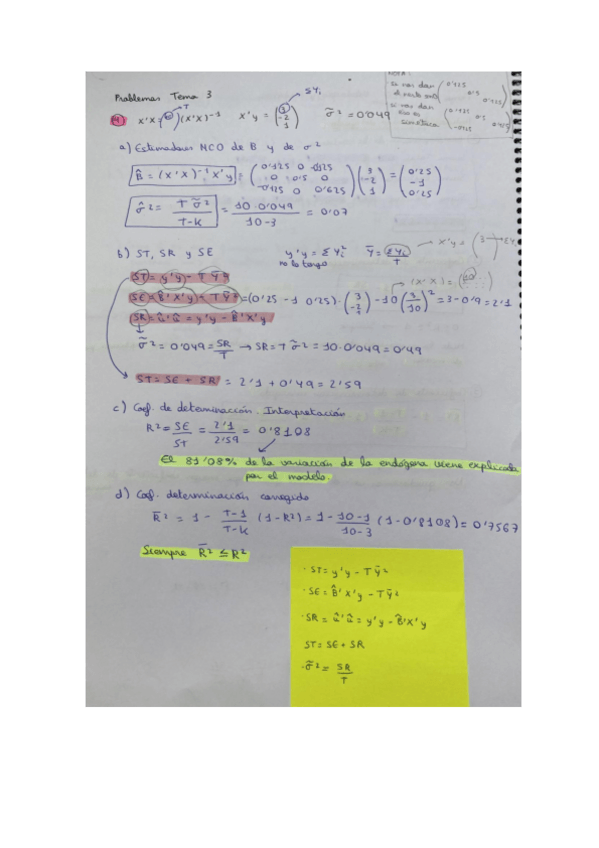 Problemas Tema 3
NOTA:
Si nos dan
0'125
0'5
0'625
si nos dan
simétrica
0'125
0'5
-0'125
SYi
T
4) X'X: 10 (X'X)⁻¹ X'y = (3 -2 1) σ̃² = 0'049
a) Estimadores MCO de B y de σ²
B̂ = (X'X)⁻¹X'y = (0'125 0 -0'125 0 0'5 0 -0'125 0 0'625) (3 -2 1) = (0'25 -1 0'25)
σ̂² = T σ̃² / T-k = 10·0'049 / 10-3 = 0'07
b) ST, SR y SE y'y = ΣYi² Ȳ = ΣYi / T → X'y = (3 → ΣYi
no lo tengo
ST = y'y - TȲ² (X'X) = (10
SE = B̂'X'y - TȲ² = (0'25 -1 0'25) · (3 -2 1) - 10 (3/10)² = 3 - 0'9 = 2'1
SR = û'û = y'y - B̂'X'y
σ̃² = 0'049 = SR/T → SR = T σ̃² = 10·0'049 = 0'49
ST = SE + SR = 2'1 + 0'49 = 2'59
c) Coef. de determinación. Interpretación
R² = SE/ST = 2'1/2'59 = 0'8108
El 81'08% de la variación de la endógena viene explicada
por el modelo.
d) Coef. determinación corregido
R̄² = 1 - T-1/T-k (1-R²) = 1 - 10-1/10-3 (1-0'8108) = 0'7567
Siempre R̄² ≤ R²
· ST = y'y - TȲ²
· SE = B̂'X'y - TȲ²
· SR = û'û = y'y - B̂'X'y
ST = SE + SR
· σ̃² = SR/T